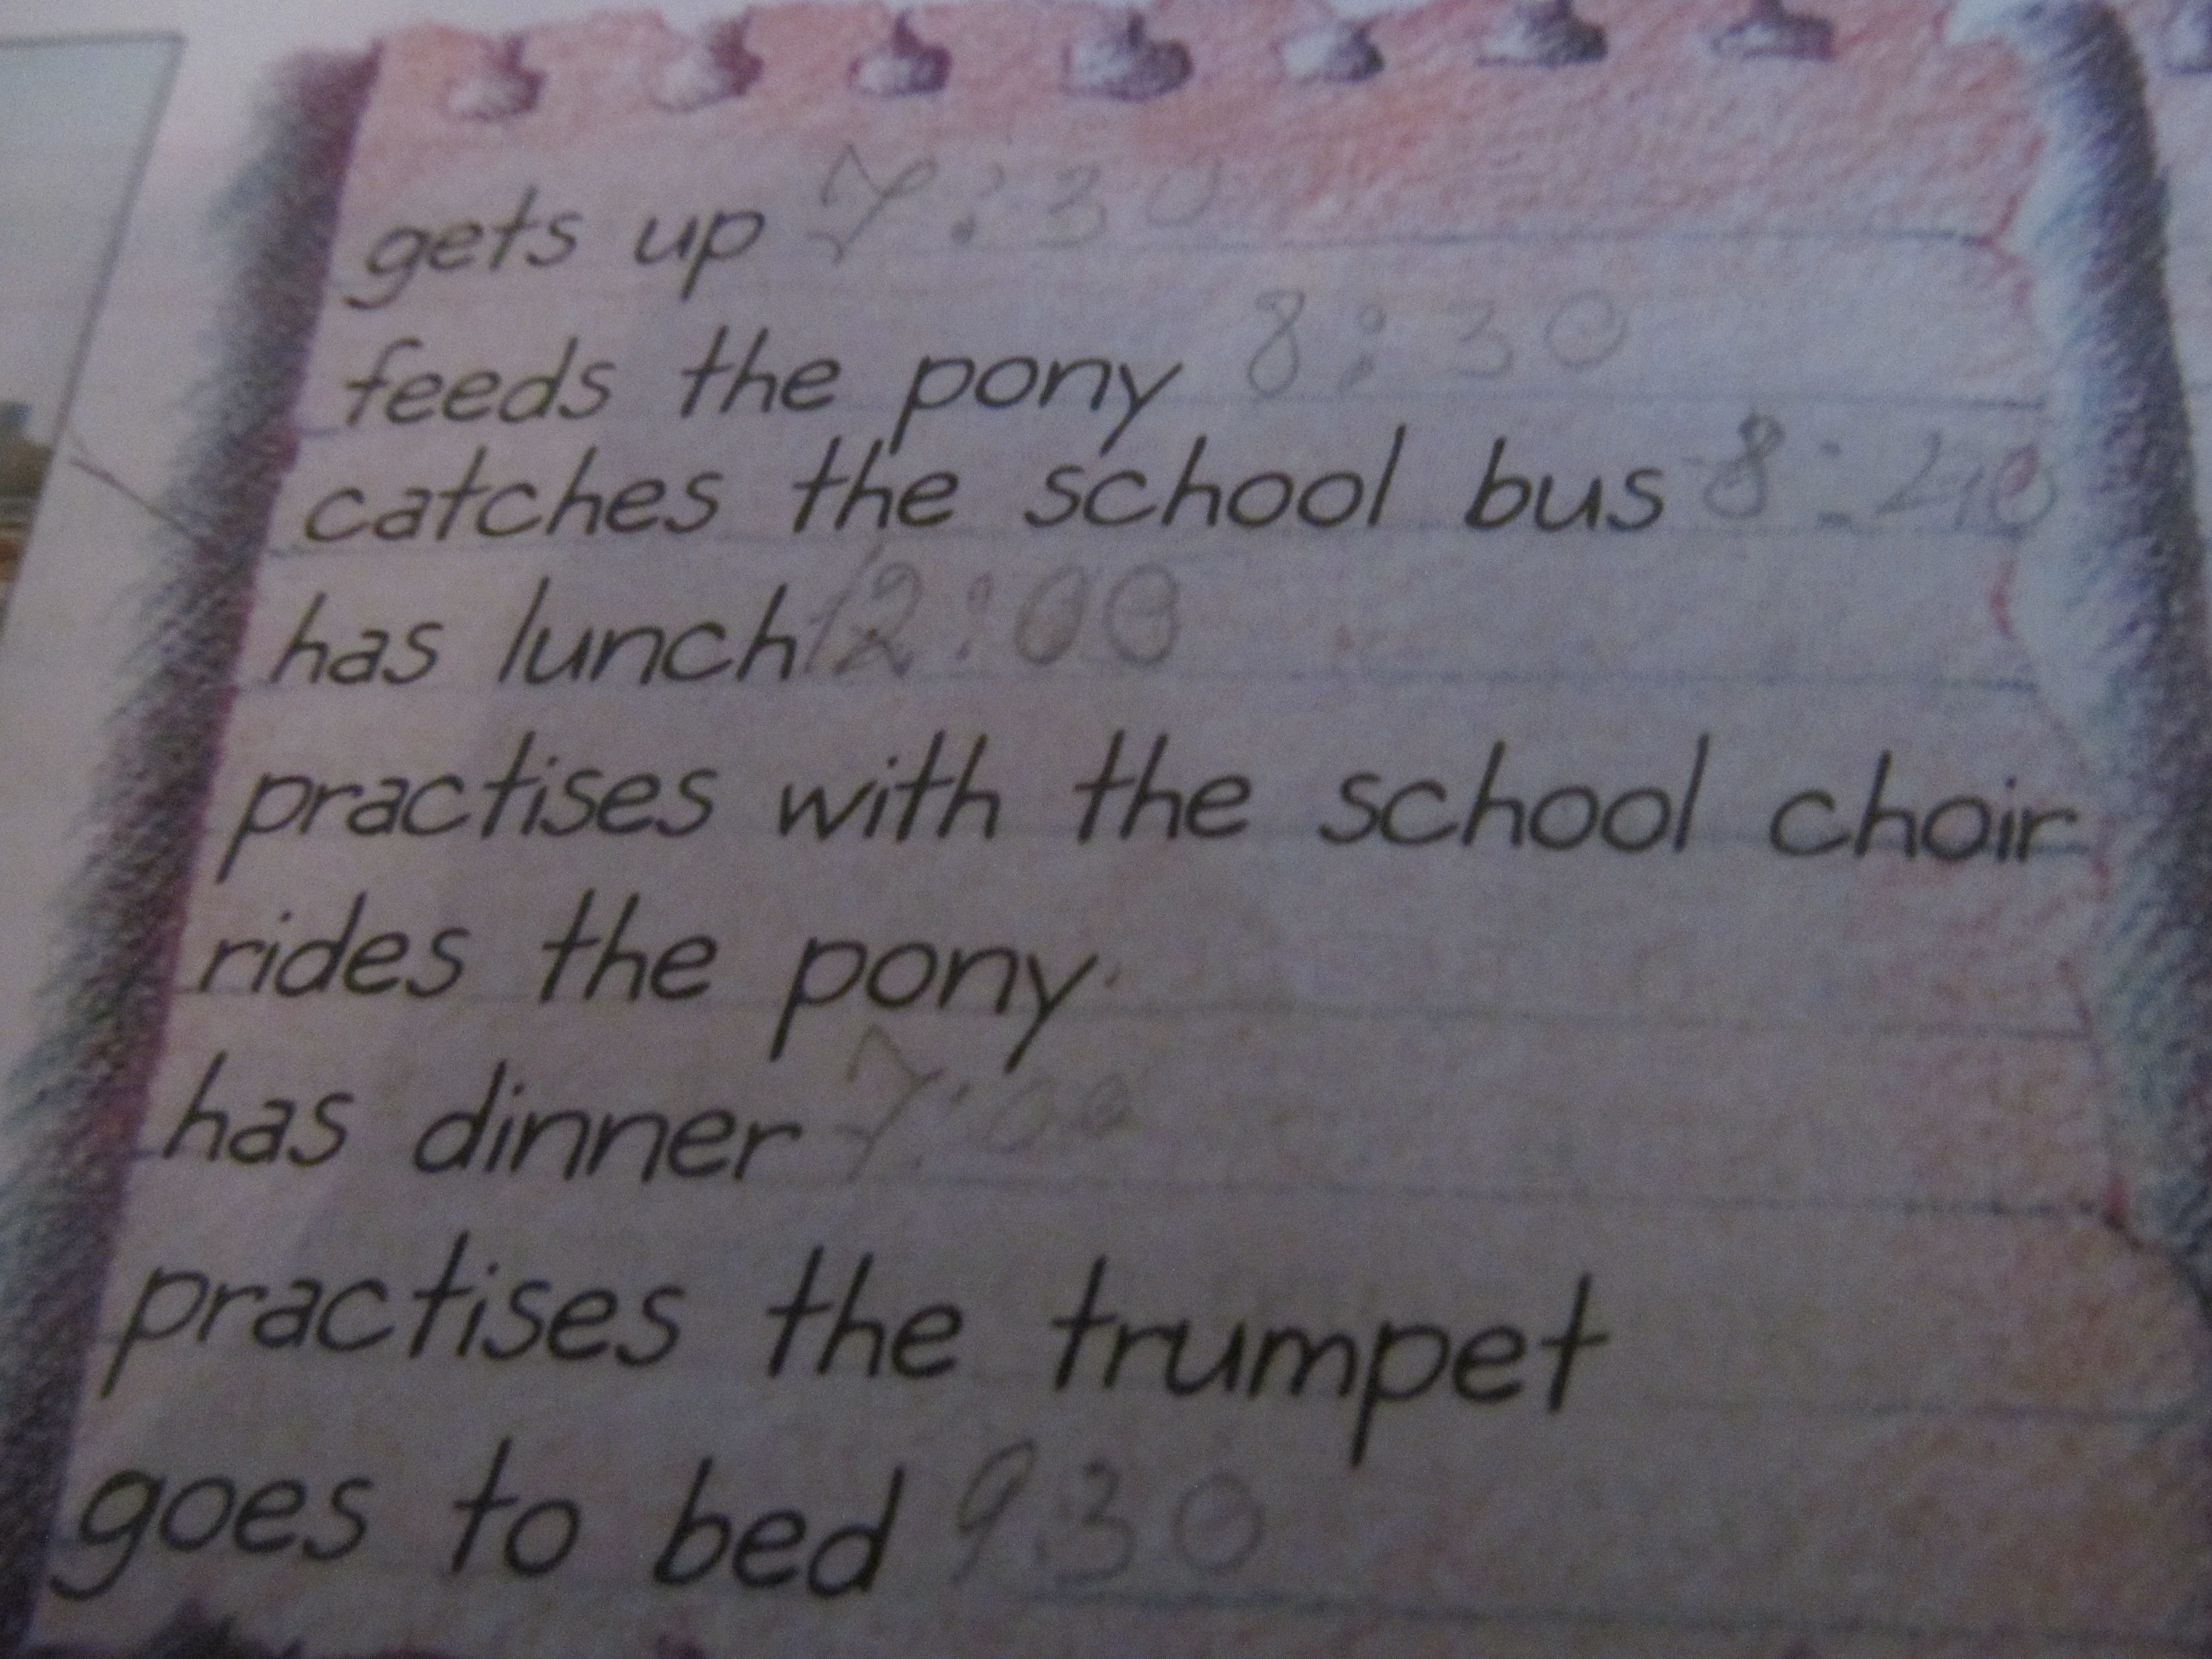 gets up 7:30
feeds the pony 8:30
catches the school bus 8:40
has lunch 12:00
practises with the school choir
rides the pony
has dinner 7:00
practises the trumpet
goes to bed 9 30